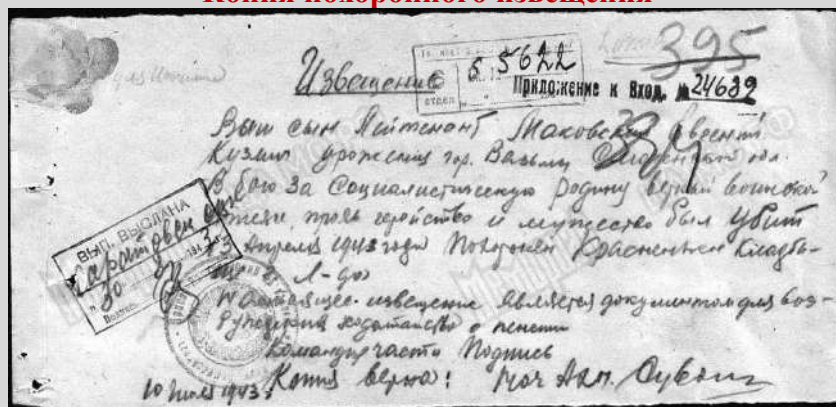 Копия похоронного извещения
395
6 5622
отдел
Извещение
Приложение к Вход. № 24639
Ваш сын Лейтенант Маковский Евгений
Кузьмич уроженец гор. Вязьмы Смоленской обл.
В бою за Социалистическую Родину верный воинской
присяге, проявив геройство и мужество был убит
13 Апреля 1943 года Похоронен Красненькое кладби-
ще г. Л-да
ВЫП. ВЫСЛАНА
Саратов
30
Настоящее извещение является документом для воз-
буждения ходатайства о пенсии
Командир части Подпись
10 1943 Копия верна: Нач